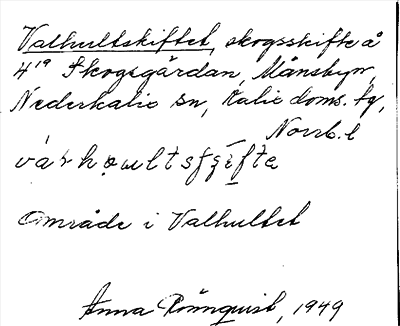 Valhultskiftet, skogsskifte å
4¹⁹ Skogsgärdan, Månsbyn,
Nederkalix sn, Kalix doms. tg,
Norrb. l
område i Valhultet
Anna Rönnquist, 1949